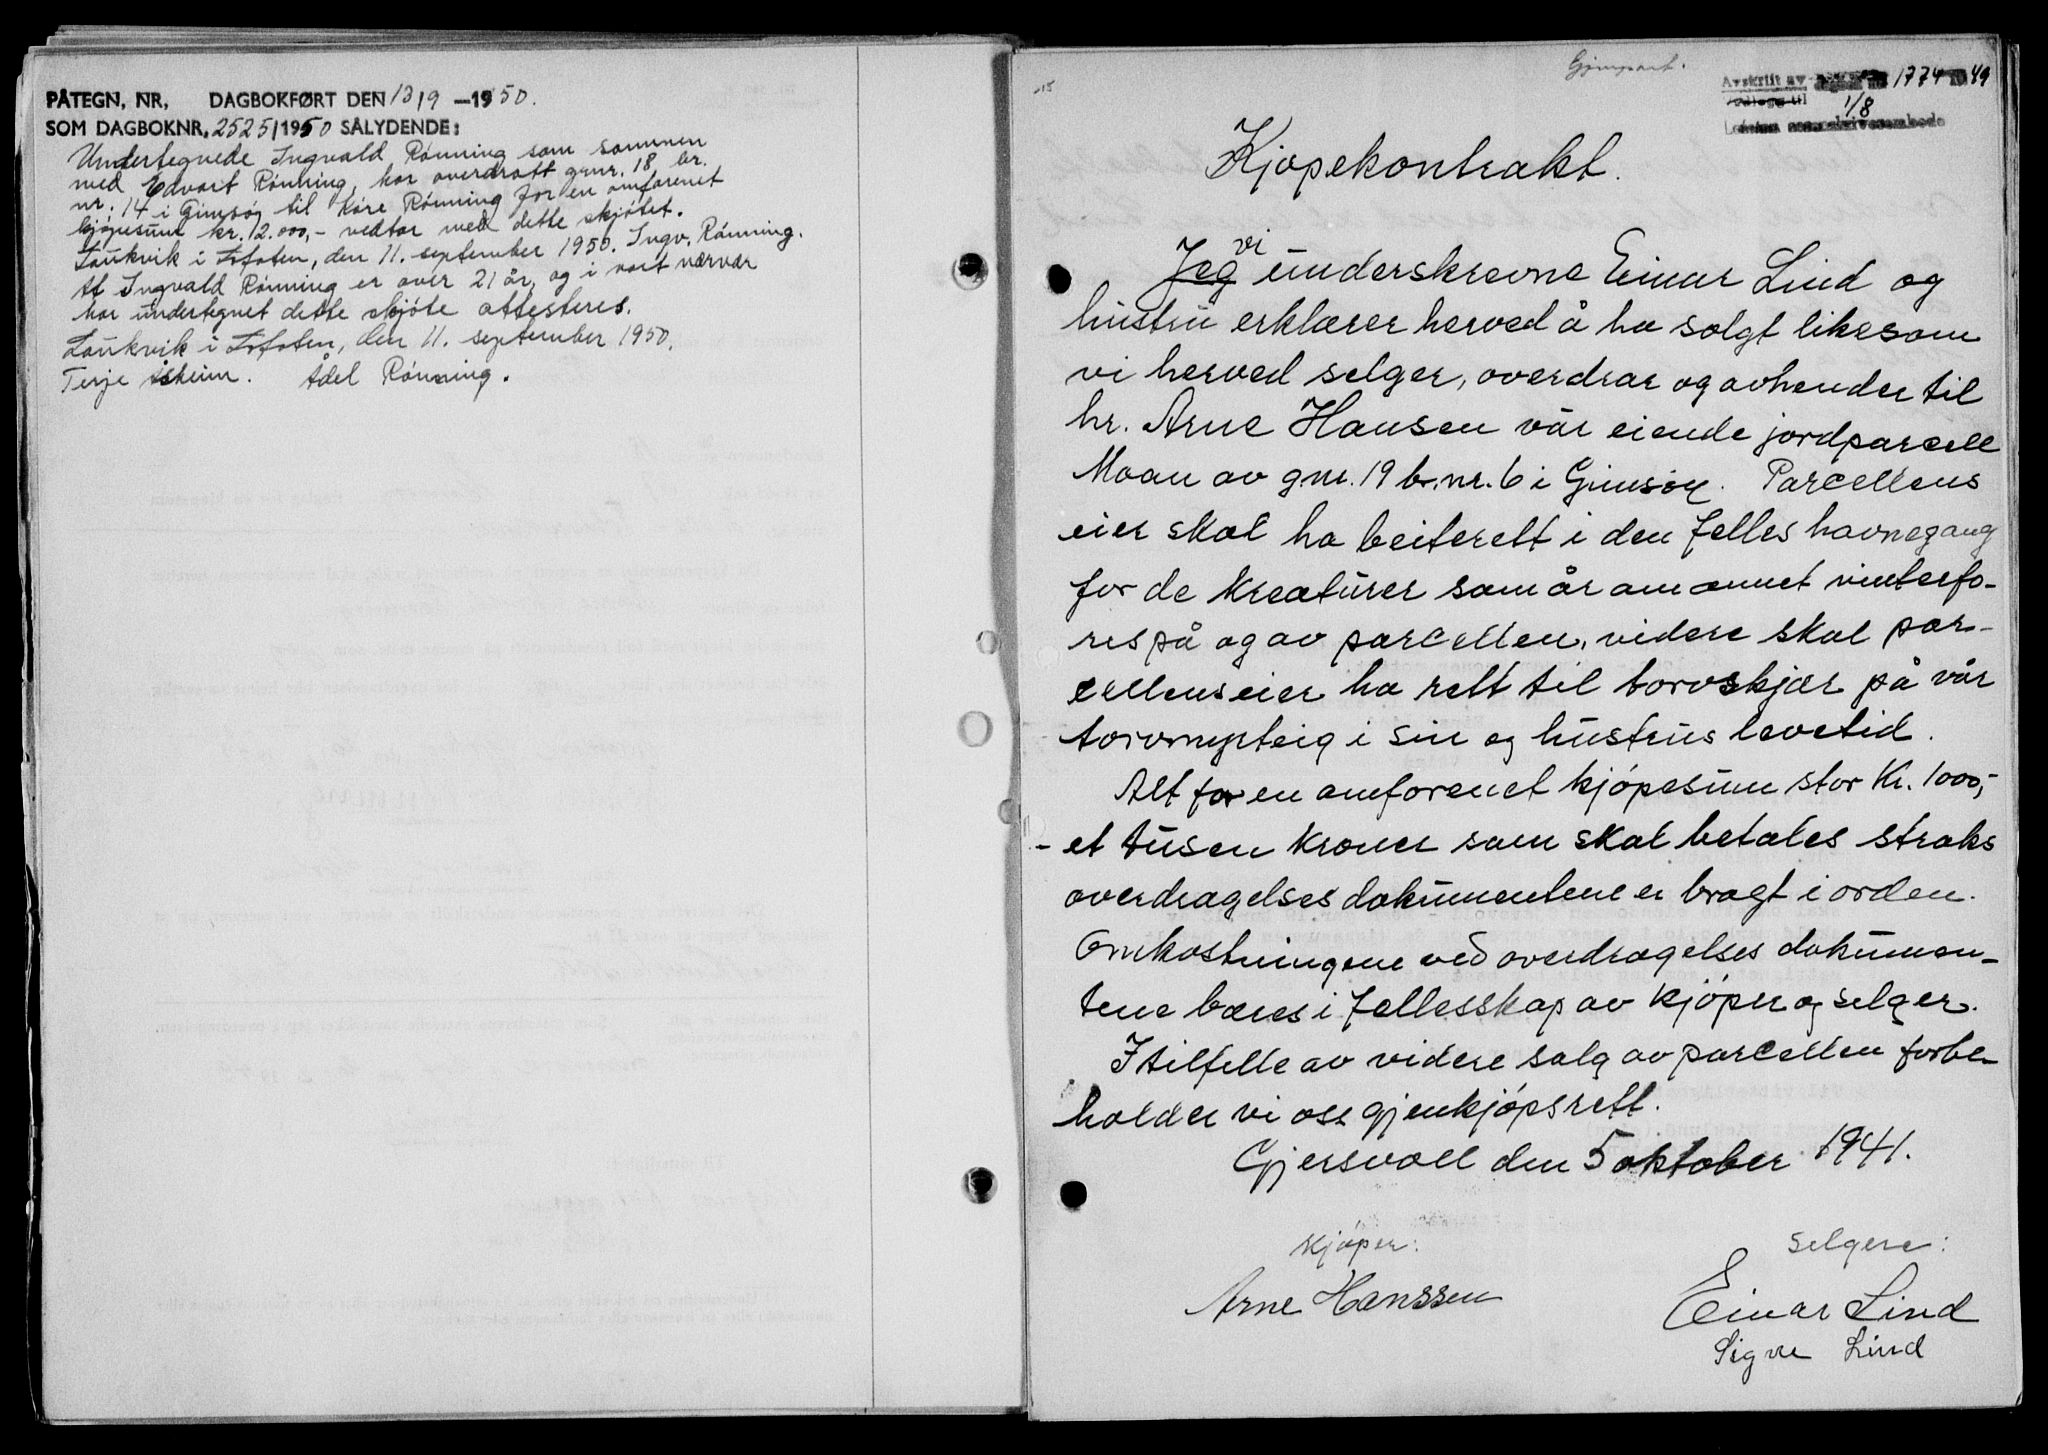 PÅTEGN, NR, DAGBOKFØRT DEN 13/9 —1950.
SOM DAGBOKNR. 2525/1950 SÅLYDENDE:
Undertegnede Ingvald Rönning som sammen
med Edvart Rönning, har overdratt gnr. 18 br.
nr. 14 i Gimsöy til Kåre Rönning for en omforenet
kjöpesum kr. 12.000,- vedtar med dette skjötet.
Laukvik i Lofoten, den 11. september 1950. Ingv. Rönning.
At Ingvald Rönning er over 21 år, og i vort nærvær
har undertegnet dette skjöte attesteres.
Laukvik i Lofoten, den 11. september 1950.
Terje Åsheim. Ådel Rönning.
Gjenpart.
Avskrift av 1774 1949
1/8
Kjøpekontrakt.
vi
Jeg underskrevne Einar Lind og
hustru erklærer herved å ha solgt likesom
vi herved selger, overdrar og avhender til
hr. Arne Hansen vår eiende jordparcell
Moan av gnr. 19 br. nr. 6 i Gimsöy. Parcellens
eier skal ha beiterett i den felles havnegang
for de kreaturer som år om annet vinterfo-
res på og av parcellen, videre skal par-
cellens eier ha rett til torvskjær på vår
torvmyrteig i sin og hustrus levetid.
Alt for en omforenet kjöpesum stor Kr. 1000,-
- et tusen kroner som skal betales straks
overdragelsesdokumentene er bragt i orden.
Omkostningene ved overdragelses dokumen-
tene bæres i fellesskap av kjöper og selger.
I tilfelle av videre salg av parcellen forbe-
holder vi oss gjenkjöpsrett.
Gjersvoll den 5 oktober 1941.
kjöper: selgere:
Arne Hanssen Einar Lind
Signe Lind